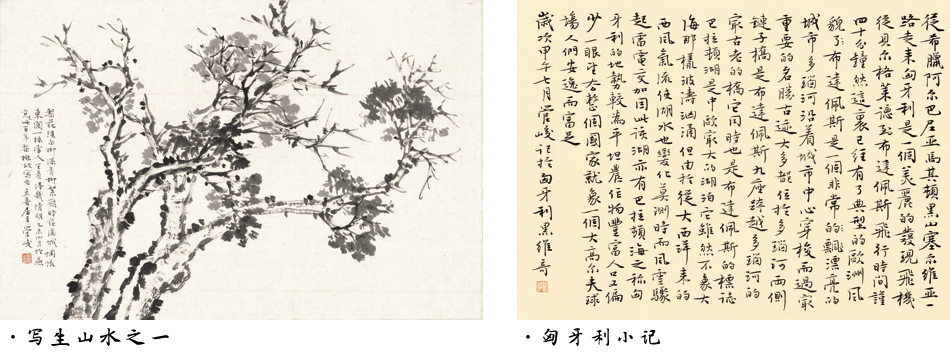 梨花淡白柳深青柳絮飛時花滿城惆悵
東闌一株雪人生看得幾清明
從希臘阿尔巴尼亚馬其頓黑山塞尔維亚一
路走来匈牙利是一個美麗的發現飛機
從貝尔格莱德到布達佩斯飛行時間謹
四十分鐘然這裏已經有了典型的歐洲风
貌了布達佩斯是一個非常的飘漂亮的
城市多瑙河沿着城市中心穿梭而過最
重要的名勝古迹大多都位於多瑙河两側
鏈子橋是布達佩斯九座跨越多瑙河的
最古老的橋它同時也是布達佩斯的標誌
巴拉頓湖是中歐最大的湖泊它雖然不象大
海那樣波濤汹涌但由於從大西洋来的
西风氣流使湖水也變化莫測時而风雲驟
起雷電交加因此该湖亦有巴拉頓海之称匈
牙利的地勢較為平坦農作物豐富人口偏
少一眼望去整個國家就象一個大高尔夫球
場人們安逸而富足
歲次甲午七月管峻記於匈牙利黑維奇
·写生山水之一
·匈牙利小记